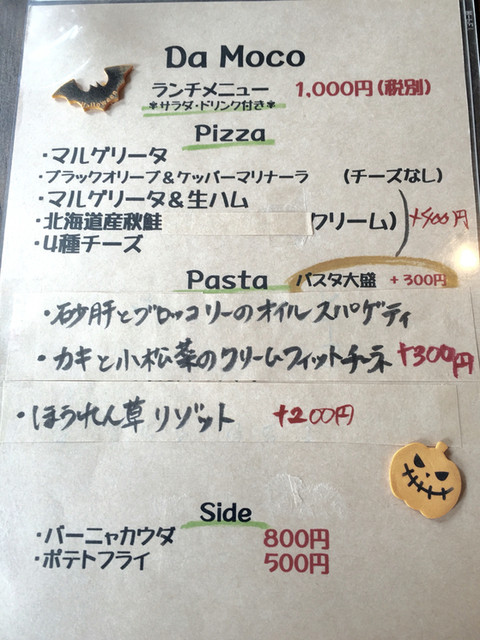 Da Moco
ランチメニュー 1,000円(税別)
*サラダ・ドリンク付き*
Pizza
・マルゲリータ
・ブラックオリーブ&ケッパーマリナーラ (チーズなし)
・マルゲリータ&生ハム
・北海道産秋鮭 クリーム) +400円
・4種チーズ
Pasta パスタ大盛 +300円
・砂肝とブロッコリーのオイルスパゲティ
・カキと小松菜のクリームフィットチーネ +300円
・ほうれん草リゾット +200円
Side
・バーニャカウダ 800円
・ポテトフライ 500円